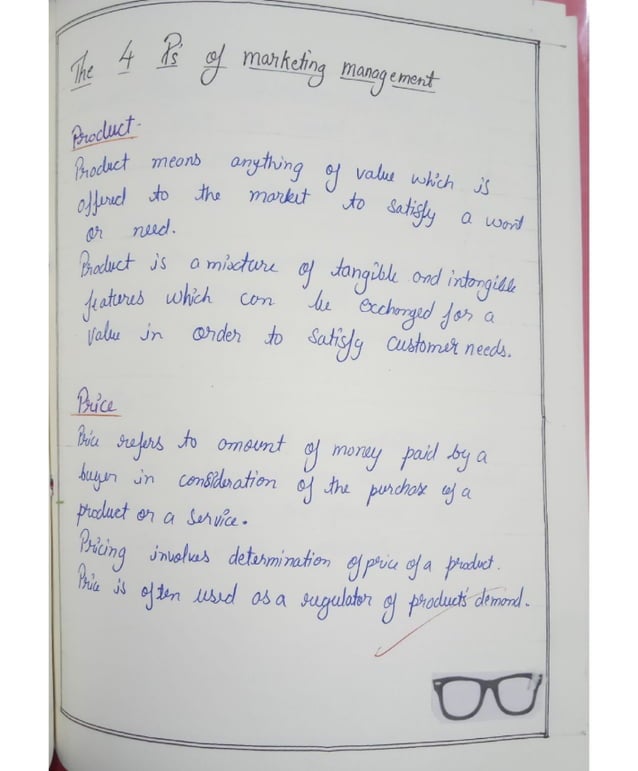 The 4 P's of marketing management
Product-
Product means anything of value which is
offered to the market to satisfy a want
or need.
Product is a mixture of tangible and intangible
features which can be exchanged for a
value in order to satisfy customer needs.
Price
Price refers to amount of money paid by a
buyer in consideration of the purchase of a
product or a service.
Pricing involves determination of price of a product.
Price is often used as a regulator of product's demand.